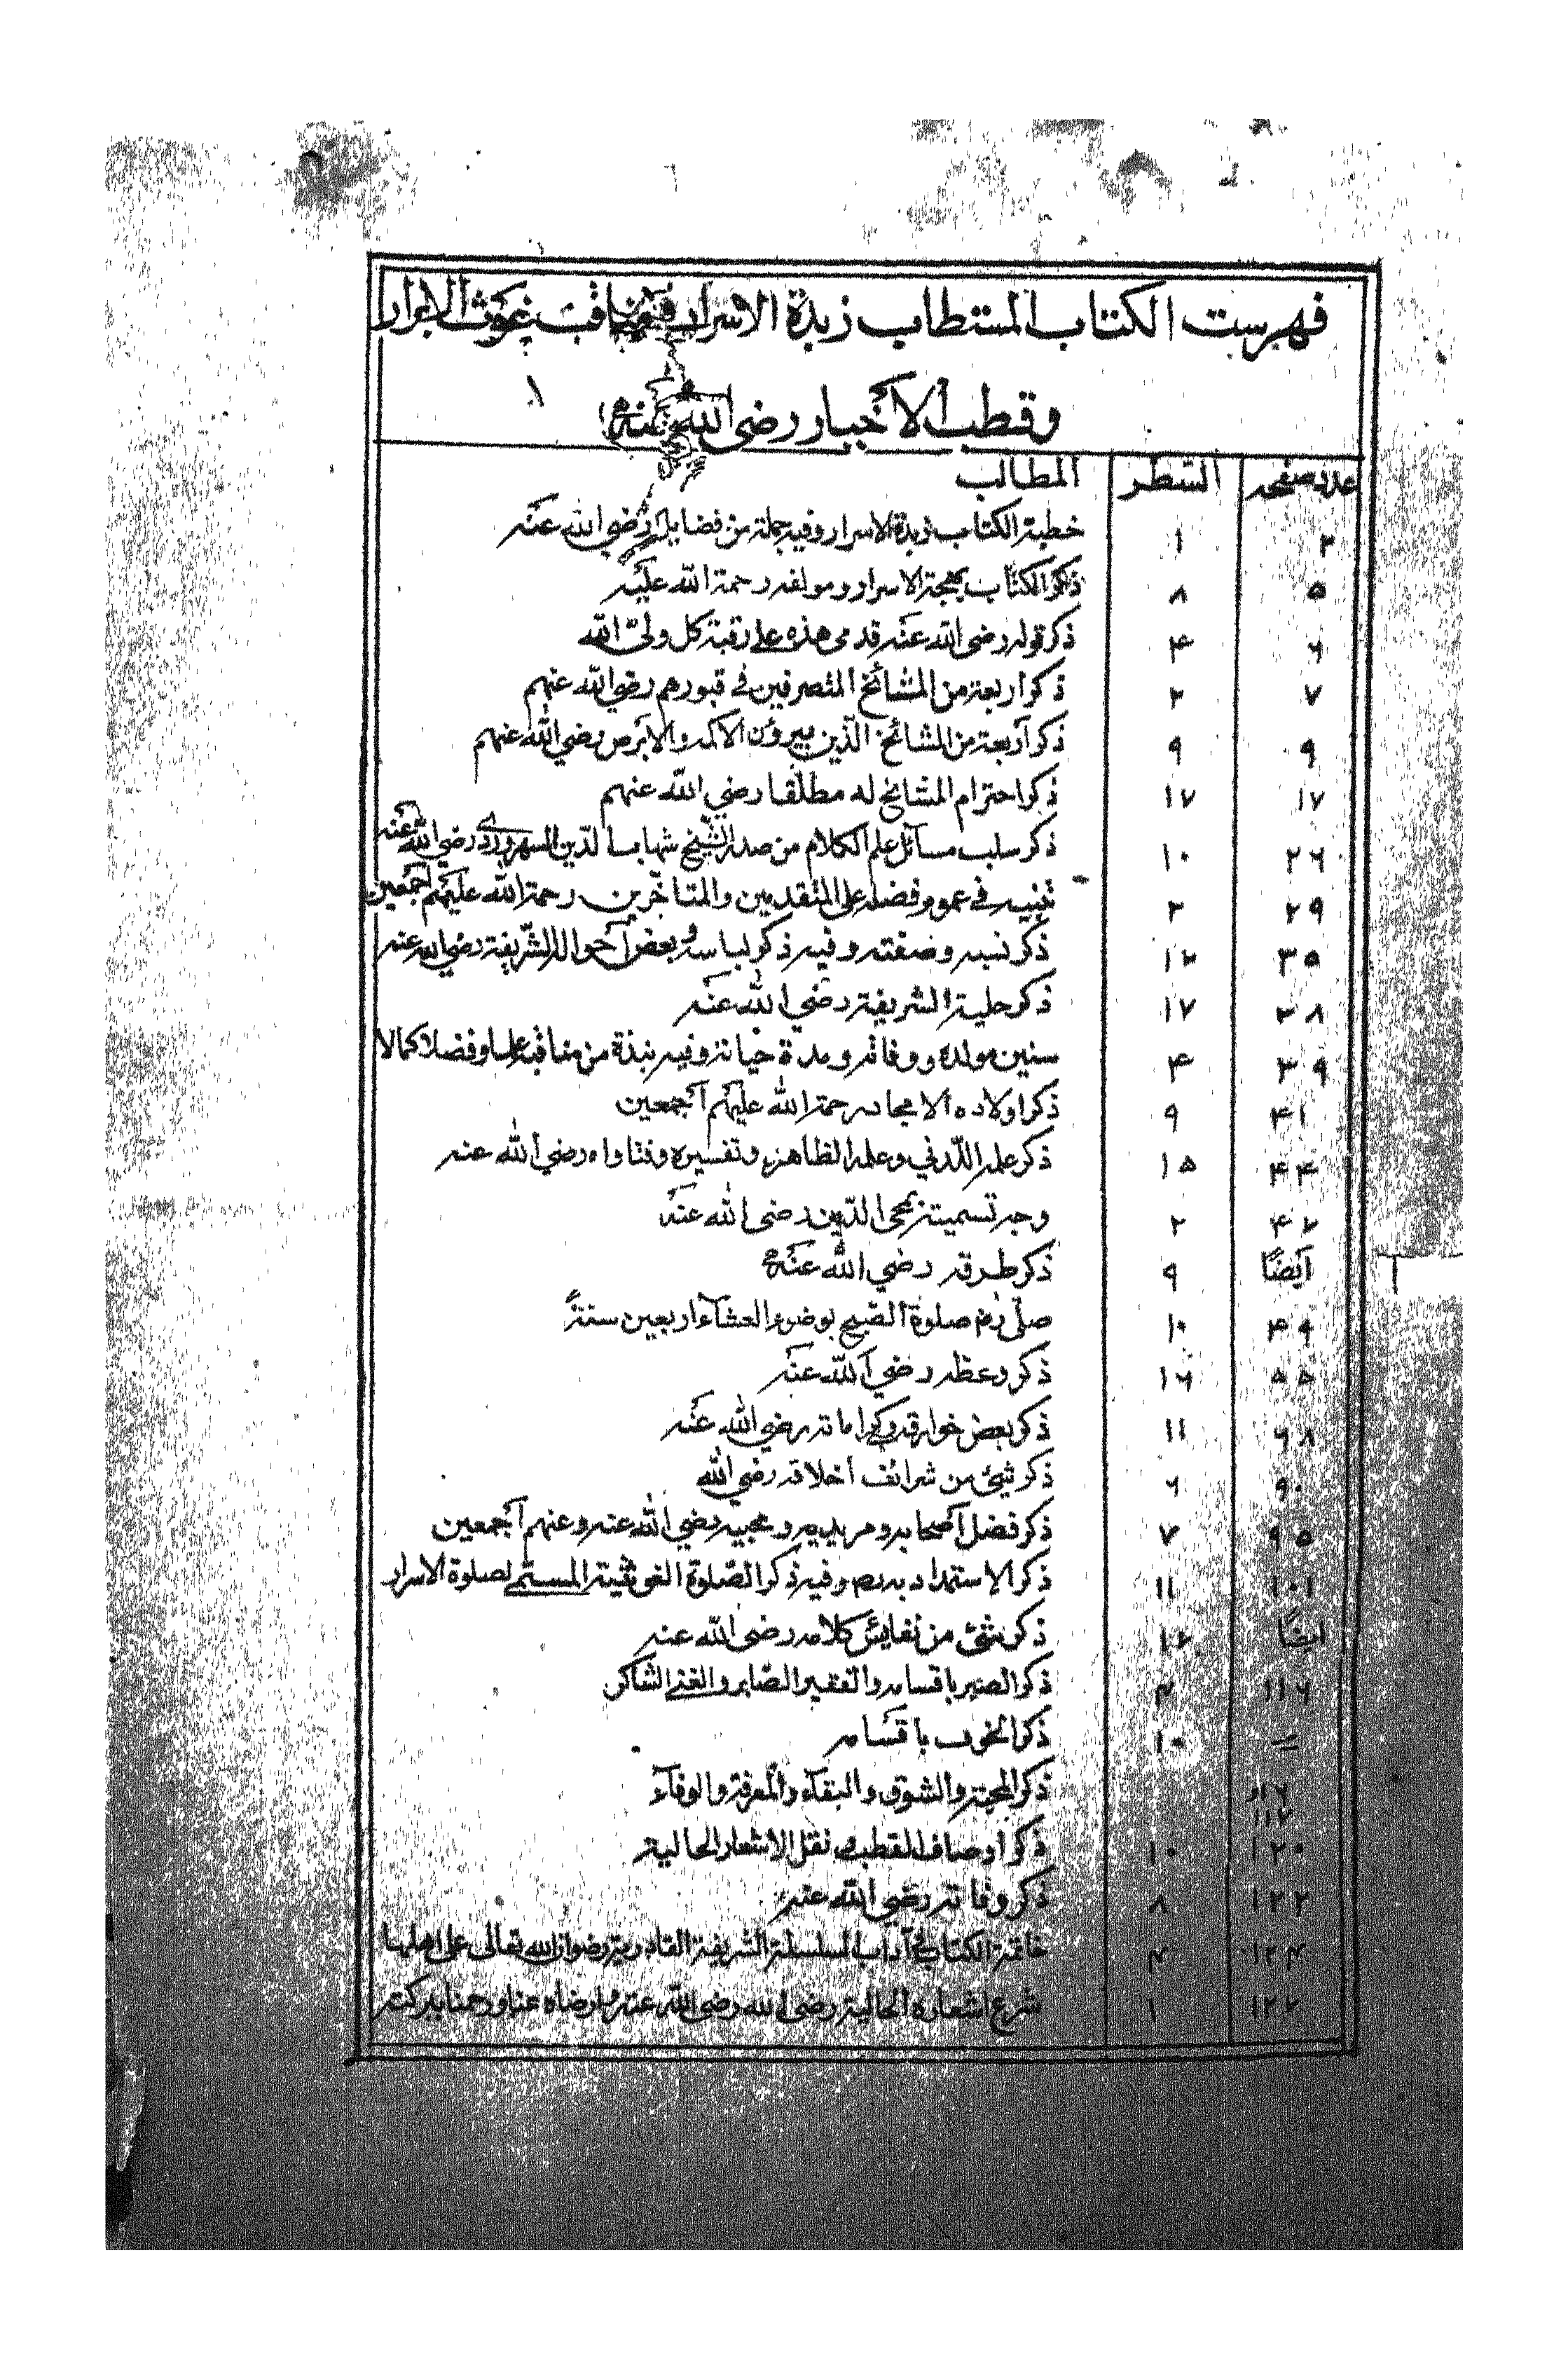 فهرست الكتاب المستطاب زبدة الاسرار في مناقب غوث الابرار
وقطب الأخيار رضى الله عنه
عدد صفحه السطر المطالب
٢ ١ خطبة الكتاب زبدة الاسرار وفيه جملة من فضايله رضي الله عنه
٥ ٨ ذكر الكتاب بهجة الاسرار ومولفه رحمة الله عليه
٦ ۴ ذكر قوله رضى الله عنه قدمى هذه على رقبة كل ولىّ الله
٧ ٢ ذكر اربعة من المشائخ المتصرفين في قبورهم رضي الله عنهم
٩ ٩ ذكر أربعة من المشائخ الذين يبرؤن الاكمه والابرص رضي الله عنهم
١٧ ١٧ ذكر احترام المشائخ له مطلقا رضي الله عنهم
٢٦ ١٠ ذكر سلب مسائل علم الكلام من صدر الشيخ شهاب الدين السهروردى رضي الله عنه
٢٩ ٣ تنبيه في عموم فضله على المتقدمين والمتاخرين رحمة الله عليهم اجمعين
٣٥ ١٢ ذكر نسبه وصفته وفيه ذكر لباسه وبعض أحواله الشريفة رضي الله عنه
٣٨ ١٧ ذكر حلية الشريفة رضي الله عنه
٣٩ ۴ سنين مولده ووفاته ومدة حياته وفيه نبذة من مناقبه علما وفضلا كمالا
۴١ ٩ ذكر اولاده الامجاد رحمة الله عليهم أجمعين
۴۴ ١٥ ذكر علمه اللدني وعلمه الظاهر وتفسيره وفتاواه رضي الله عنه
۴٢ ٢ وجه تسميته بمحى الدين رضى الله عنه
أيضًا ٩ ذكر طرقه رضي الله عنه
۴٩ ١٠ صلى رضه صلوة الصبح بوضوء العشاء اربعين سنة
٥٥ ١٦ ذكر وعظه رضي الله عنه
٦٨ ١١ ذكر بعض خوارقه وكراماته رضي الله عنه
٩٠ ٦ ذكر شئ من شرائف أخلاقه رضي الله
٩٥ ٧ ذكر فضل أصحابه ومريديه ومحبيه رضي الله عنه وعنهم أجمعين
١٠١ ١١ ذكر الاستمداد به رضه وفيه ذكر الصلوة الغوثية المسمى لصلوة الاسرار
ايضًا ١٢ ذكر شئ من نفايس كلامه رضى الله عنه
١١٦ ۴ ذكر الصبر باقسامه والفقير الصابر والغني الشاكر
١٠ ذكر الخوف باقسامه
١١٦ و ١١٧ ذكر المحبة والشوق والبقاء والمعرفة والوفاء
١٢٠ ١٠ ذكر اوصاف القطب نقل الاشعار الحالية
١٢٢ ٨ ذكر وفاته رضي الله عنه
١٢۴ ۴ خاتمة الكتاب في آداب السلسلة الشريفة القادرية رضوان الله تعالى على اهلها
١٢٢ ١ شرع اشعاره الحالية رضى الله رضى الله عنه وارضاه عنا ورحمنا ببركته